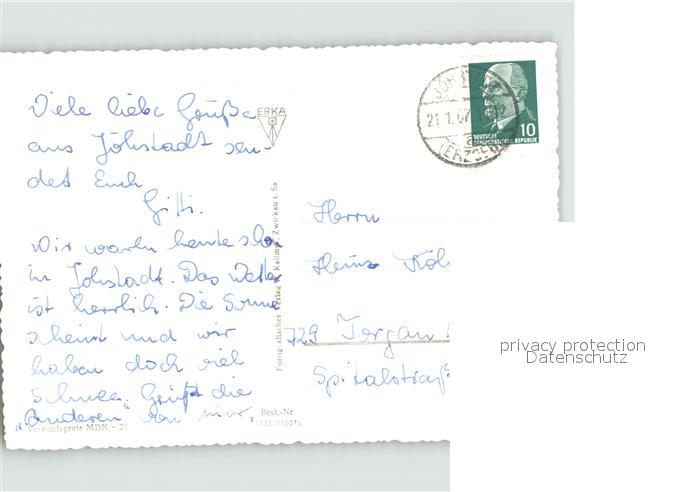 Viele liebe Grüße
aus Jöhstadt sen-
det Euch
Gitti.
Wir waren heute schon
in Jöhstadt. Das Wetter
ist herrlich. Die Sonne
scheint und wir
haben doch viel
Schnee. Grüßt die
"Anderen" von mir.
Verkaufspreis MDN -.25
ERKA
Fotografischer Verlag Kallmer, Zwickau i. Sa
Best.-Nr
21.1.67
(ERZGEB
DEUTSCHE
DEMOKRATISCHE REPUBLIK
10
Herrn
Heinz Köh
729 Torgau
Spitalstraß
privacy protection
Datenschutz